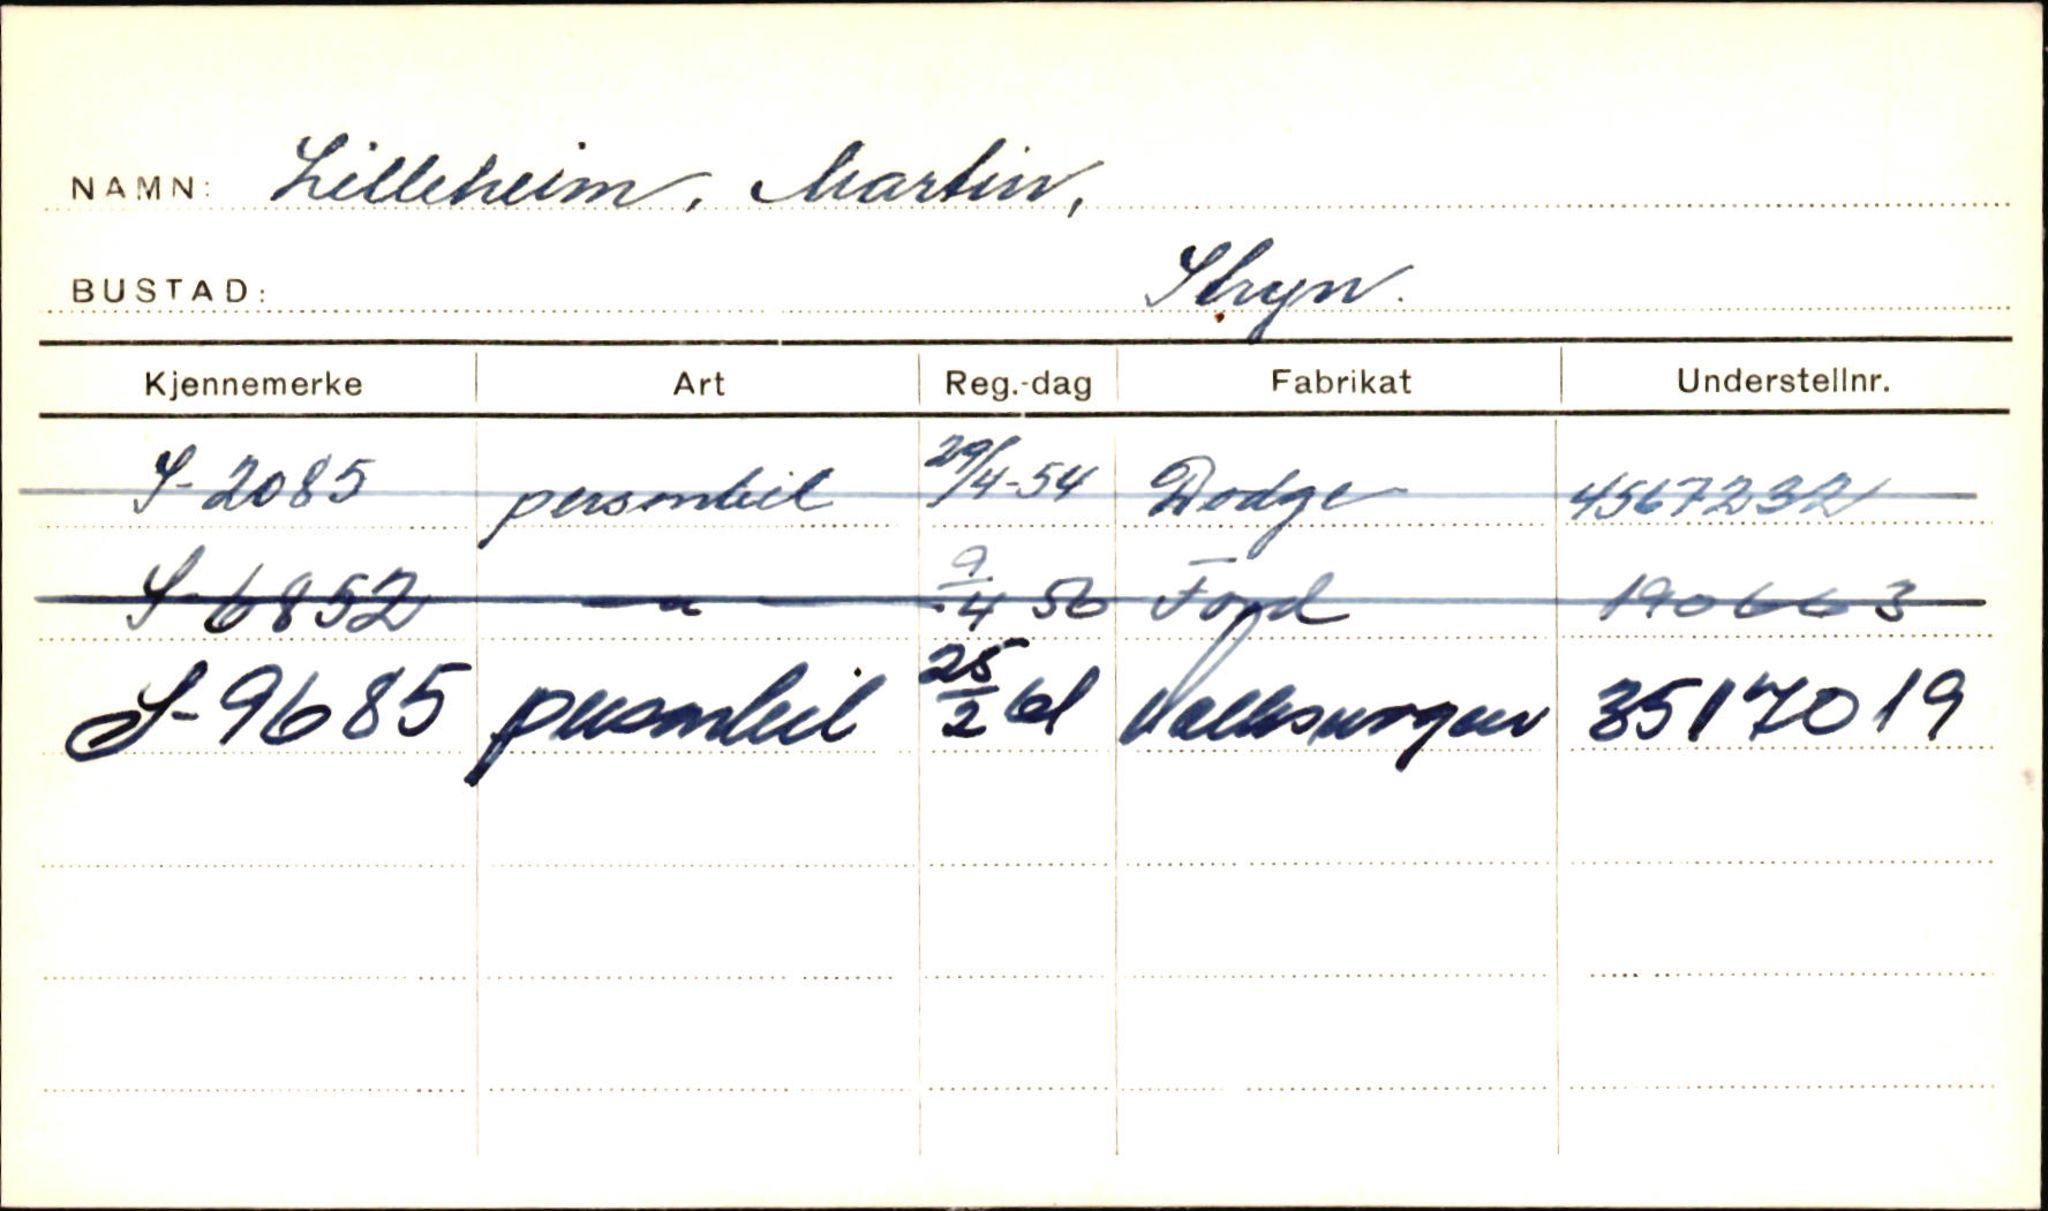 NAMN: Lilleheim, Martin,
BUSTAD: Stryn.
Kjennemerke Art Reg.-dag Fabrikat Understellnr.
S-2085 personbil 29/4-54 Dodge 4567232
S-6852 — " — 9/4 56 Ford 190663
S-9685 personbil 25/2 61 Volkswagen 3517019